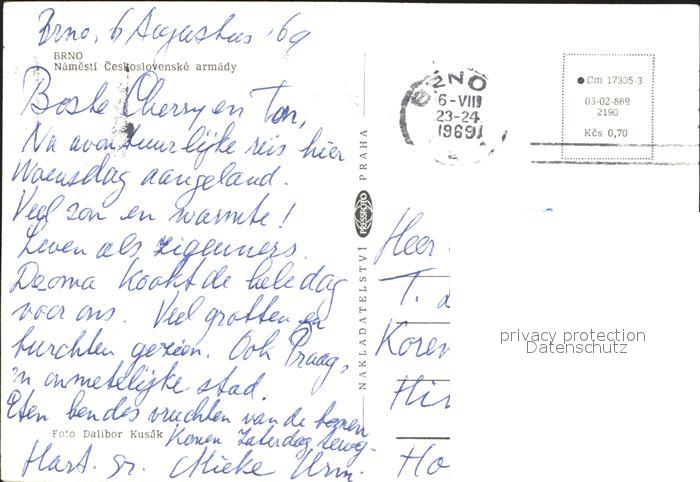 Brno, 6 Augustus '69
BRNO
Náměstí Československé armády
Beste Cherry en Ton,
Na avontuurlijke reis hier
Woensdag aangeland.
Veel zon en warmte!
Leven als zigeuners.
Dzoma kookt de hele dag
voor ons. Veel grotten en
burchten gezien. Ook Praag,
'n onmetelijke stad.
Eten bendes vruchten van de bomen
Foto Dalibor Kusák
Komen Zaterdag terug.
Hart. gr. Mieke
NAKLADATELSTVÍ PRESSFOTO PRAHA
BRNO
6-VIII
23-24
1969
Cm 17305-3
03-02-869
2190
Kčs 0,70
Heer
T. d
Koren
Hi
Ho
privacy protection
Datenschutz